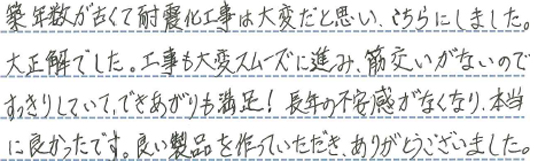 築年数が古くて耐震化工事は大変だと思い、こちらにしました。
大正解でした。工事も大変スムーズに進み、筋交いがないので
すっきりしていて、できあがりも満足！長年の不安感がなくなり、本当
に良かったです。良い製品を作っていただき、ありがとうございました。